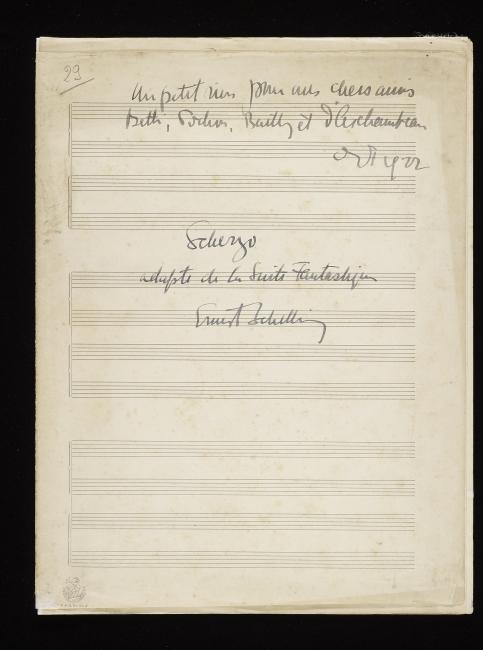 29
Un petit rien pour mes chers amis
Betti, Pochon, Bailly et d'Archambeau
Oct 1922
Scherzo
adapté de la Suite Fantastique
Ernest Schelling